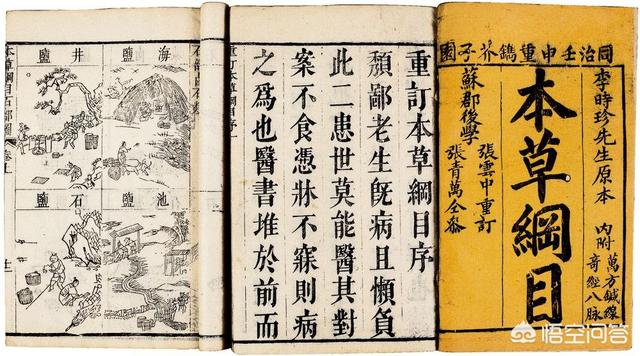 同治壬申重鐫芥子園
李時珍先生原本
內附
萬方鍼線
奇經八脉
本草綱目
蘇郡後學
張雲中重訂
張青萬仝參
重訂本草綱目序
頽鄙老生旣病且懶負
此二患世莫能醫其對
案不食憑牀不寐則病
之爲也醫書堆於前而
重訂本草綱目序
海鹽
井鹽
池鹽
石鹽
本草綱目石部圖
悟空问答